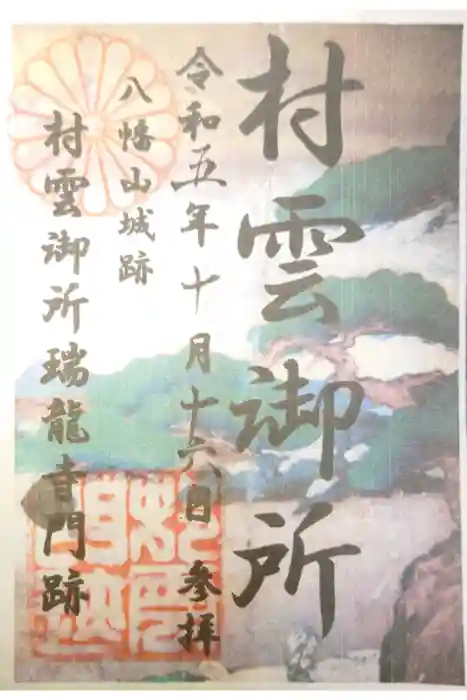 村雲御所
令和五年十月十六日 参拝
八幡山城跡
村雲御所瑞龍寺門跡